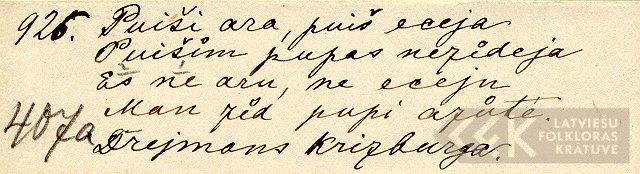 926. Puiši ara, puiš eceja
Puišim pupas nezīdeja
Es ne aru, ne eceju
Man zīd pupi azūtē.
407a Drejmans Krizburga.
LATVIEŠU
FOLKLORAS
KRĀTUVE